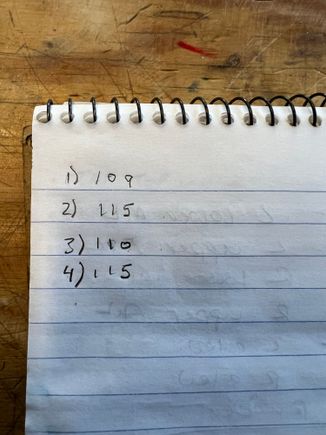 1) 109
2) 115
3) 110
4) 115